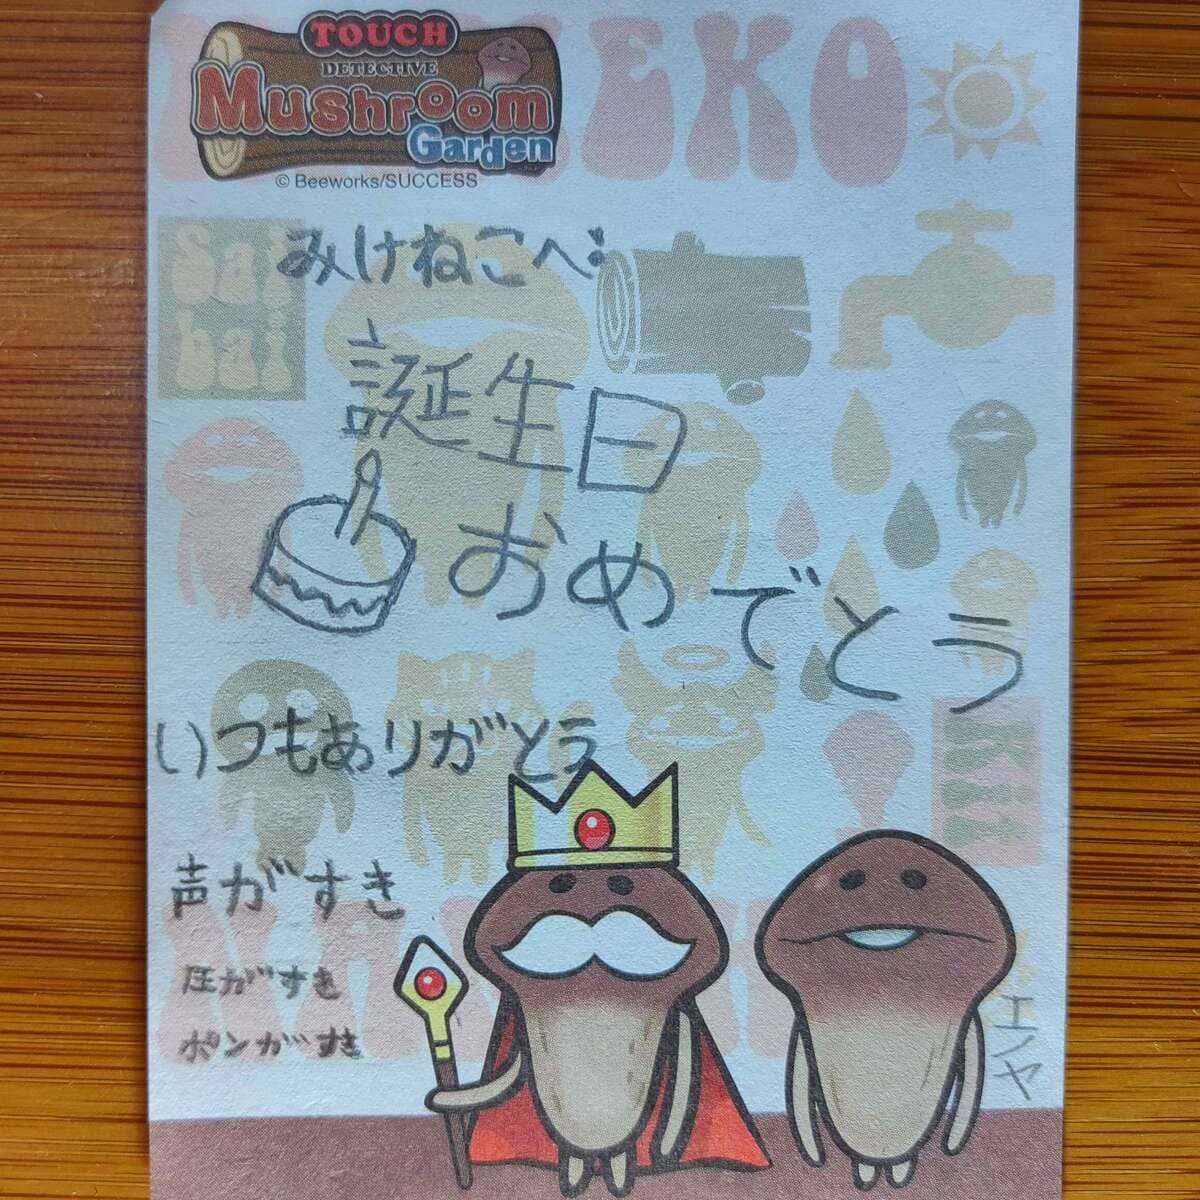 TOUCH
DETECTIVE
Mushroom
Garden
© Beeworks/SUCCESS
みけねこへ:
誕生日
おめでとう
いつもありがとう
声がすき
圧がすき
ポンがすき
エノヤ